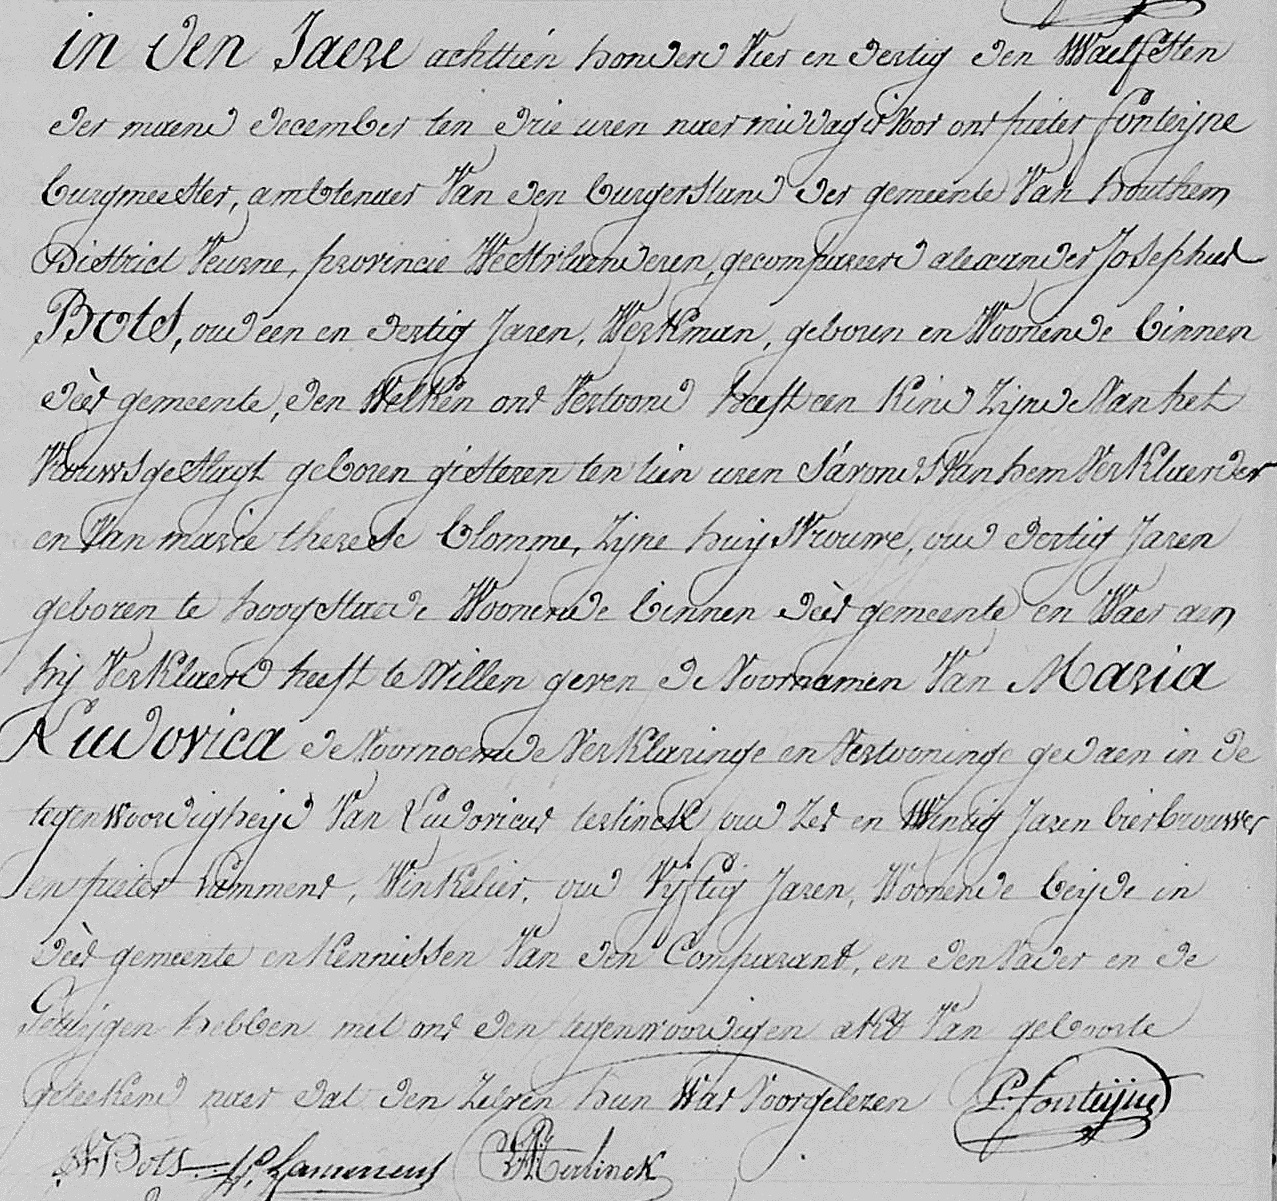 in den Jaere achttien honderd Vier en dertig den Waelfsten
der maend december ten drie uren naer middag is Voor ons pieter fonteijne
burgmeester, ambtenaer Van den burgerstand der gemeente Van houthem
District Veurne, provincie Westvlaenderen, gecompareerd alexander Josephus
Bots, oud een en dertig Jaren, Werkman, geboren en Woonende binnen
deès gemeente, den Welken ons Vertoond heeft een Kind Zijnde Van het
Vrouwsgeslagt geboren gisteren ten tien uren s'avonds Van hem Verklaerder
en Van marie therese Clomme, Zijne huijsvrouwe, oud dertig Jaren
geboren te hoogstaede Woonende binnen deès gemeente en Waer aen
hij Verklaerd heeft te Willen geven de Voornamen Van Maria
Ludovica de Voornoemde Verklaringe en Vertooninge gedaen in de
tegenwoordigheijd Van Ludovicus terlinck oud Zes en Wintig Jaren bierbrouwer
en pieter Lammens, Winkelier, oud Vijftig Jaren, Woonende beijde in
deès gemeente en Kennissen Van den Comparant, en den Vader en de
Getuijgen hebben met ons den tegenwoordigen akt Van geboorte
geteekend naer dat den Zelven hun Was Voorgelezen P. fonteijne
A Bots P. Lammens L Terlinck